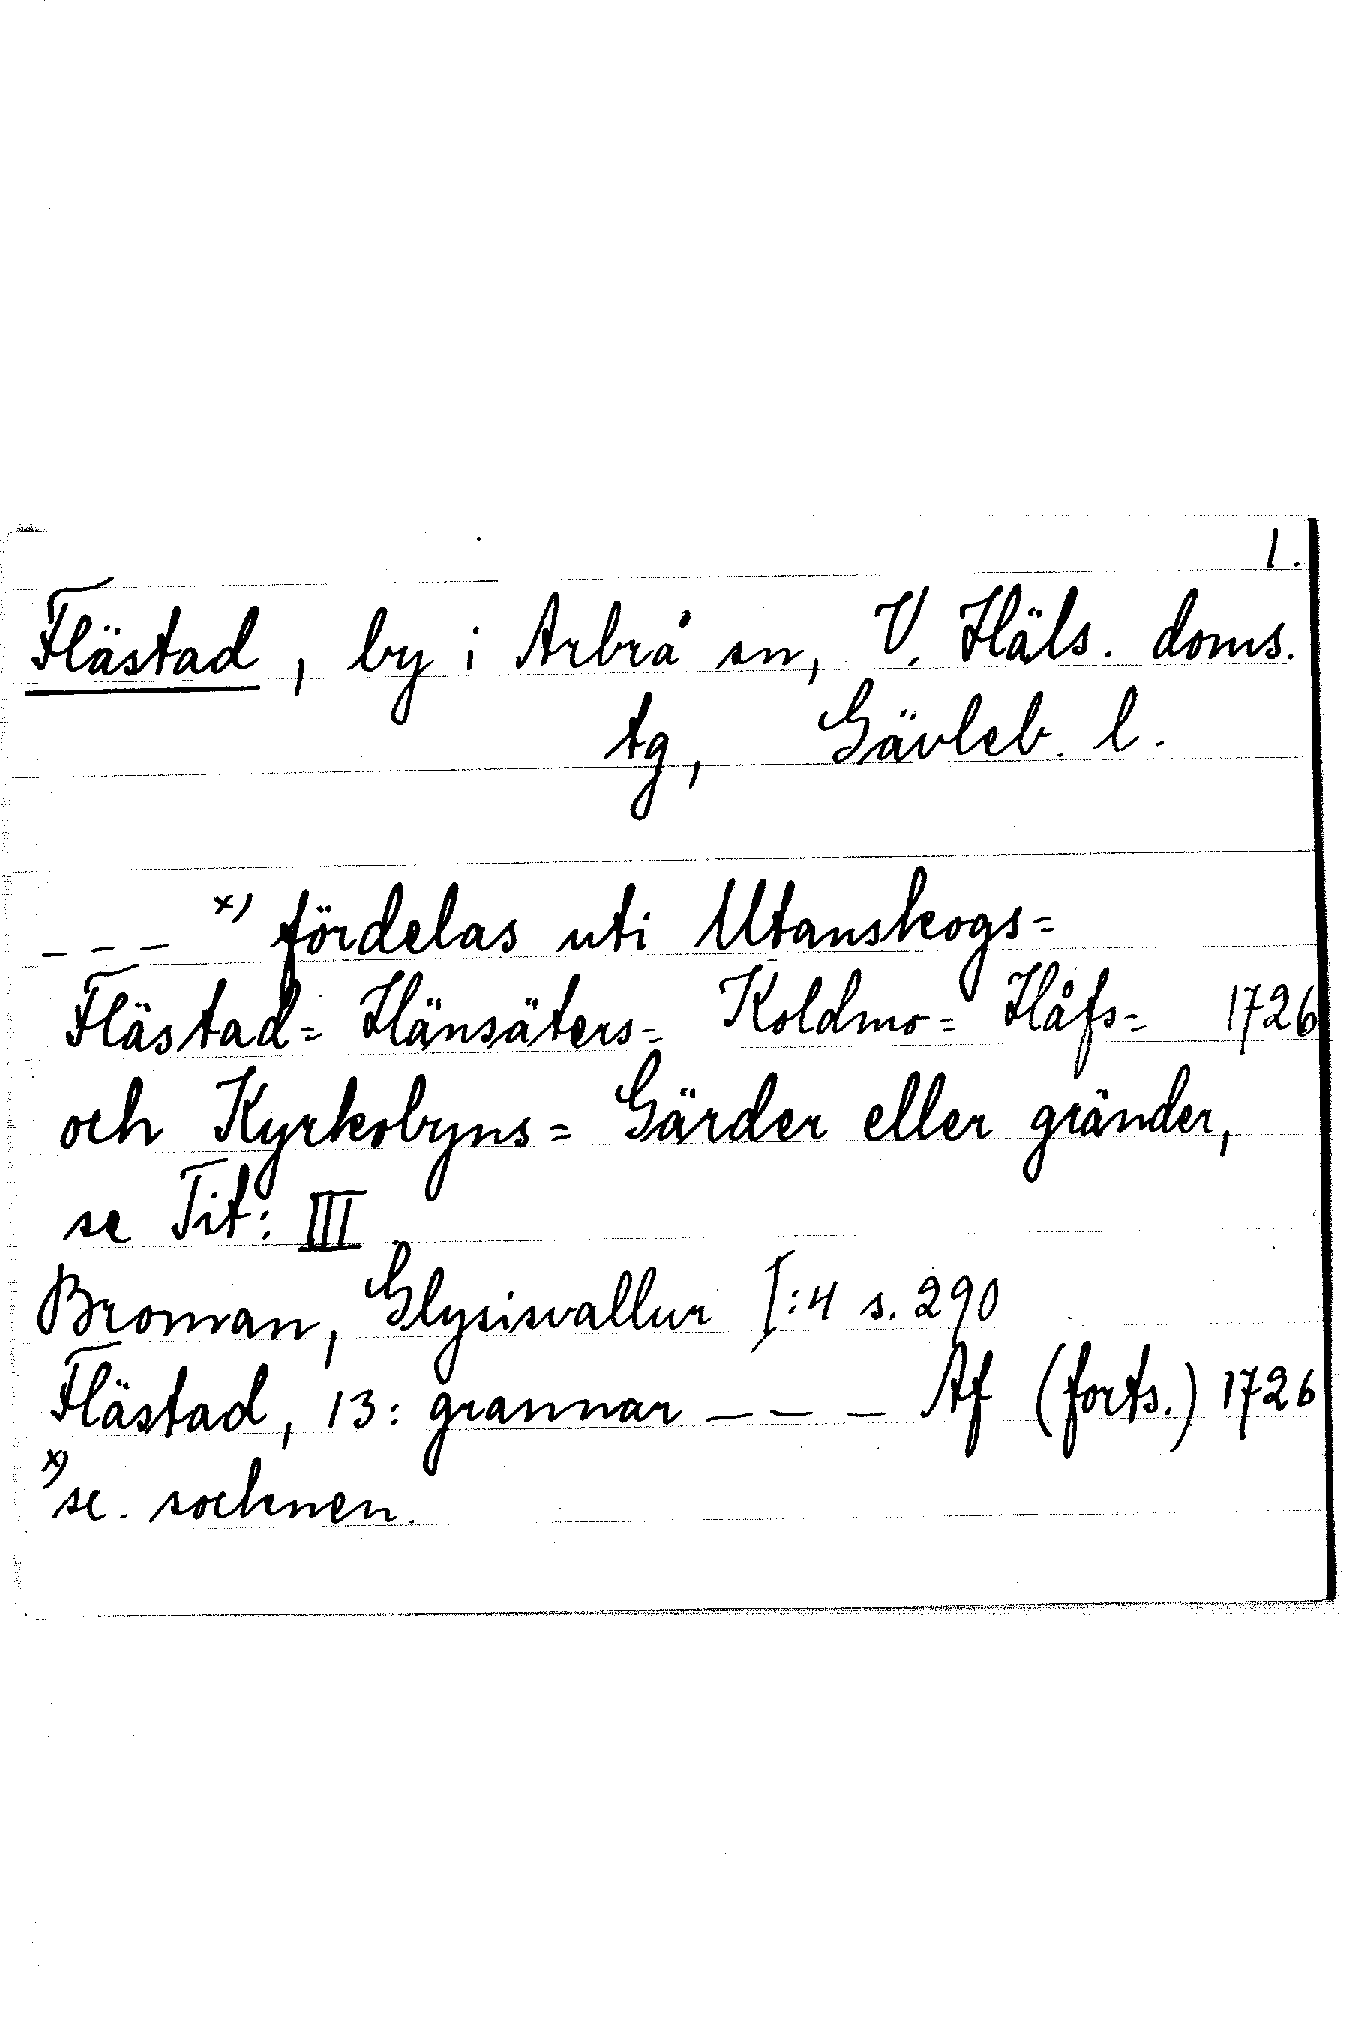 1.
Flästad, by i Arbrå sn, V. Häls. doms.
tg, Gävleb. l.
--- x) fördelas uti Utanskogs=
Flästad= Hänsäters= Koldmo= Håfs= 1726
och Kyrkobyns= Gärder eller gränder,
se Tit: III
Broman, Glysisvallur I:4 s. 290
Flästad, 13: grannar --- Af (forts.) 1726
x) se. socknen.